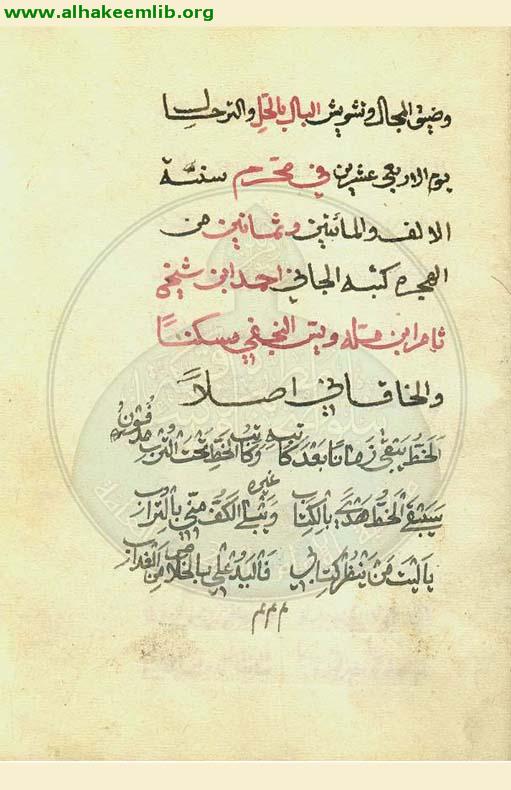 www.alhakeemlib.org
وضيق المجال وتشويش البال بالحل والترحال
يوم الاربعى عشرين في محرم سنة
الالف والمائتين وثمانين من
الهجره كتبه الجاني احمد ابن شيخي
ثامر ابن ويس النجفي مسكناً
والخاقاني اصلاً
الخط يبقى زمانا بعد كاتبه وكاتب الخط تحت الترب مدفون
غيره
سيبقى الخط هدي بالكتاب ويبلى الكف مني بالتراب
ياليت من كتابي بالخلاص من العذاب
م م م